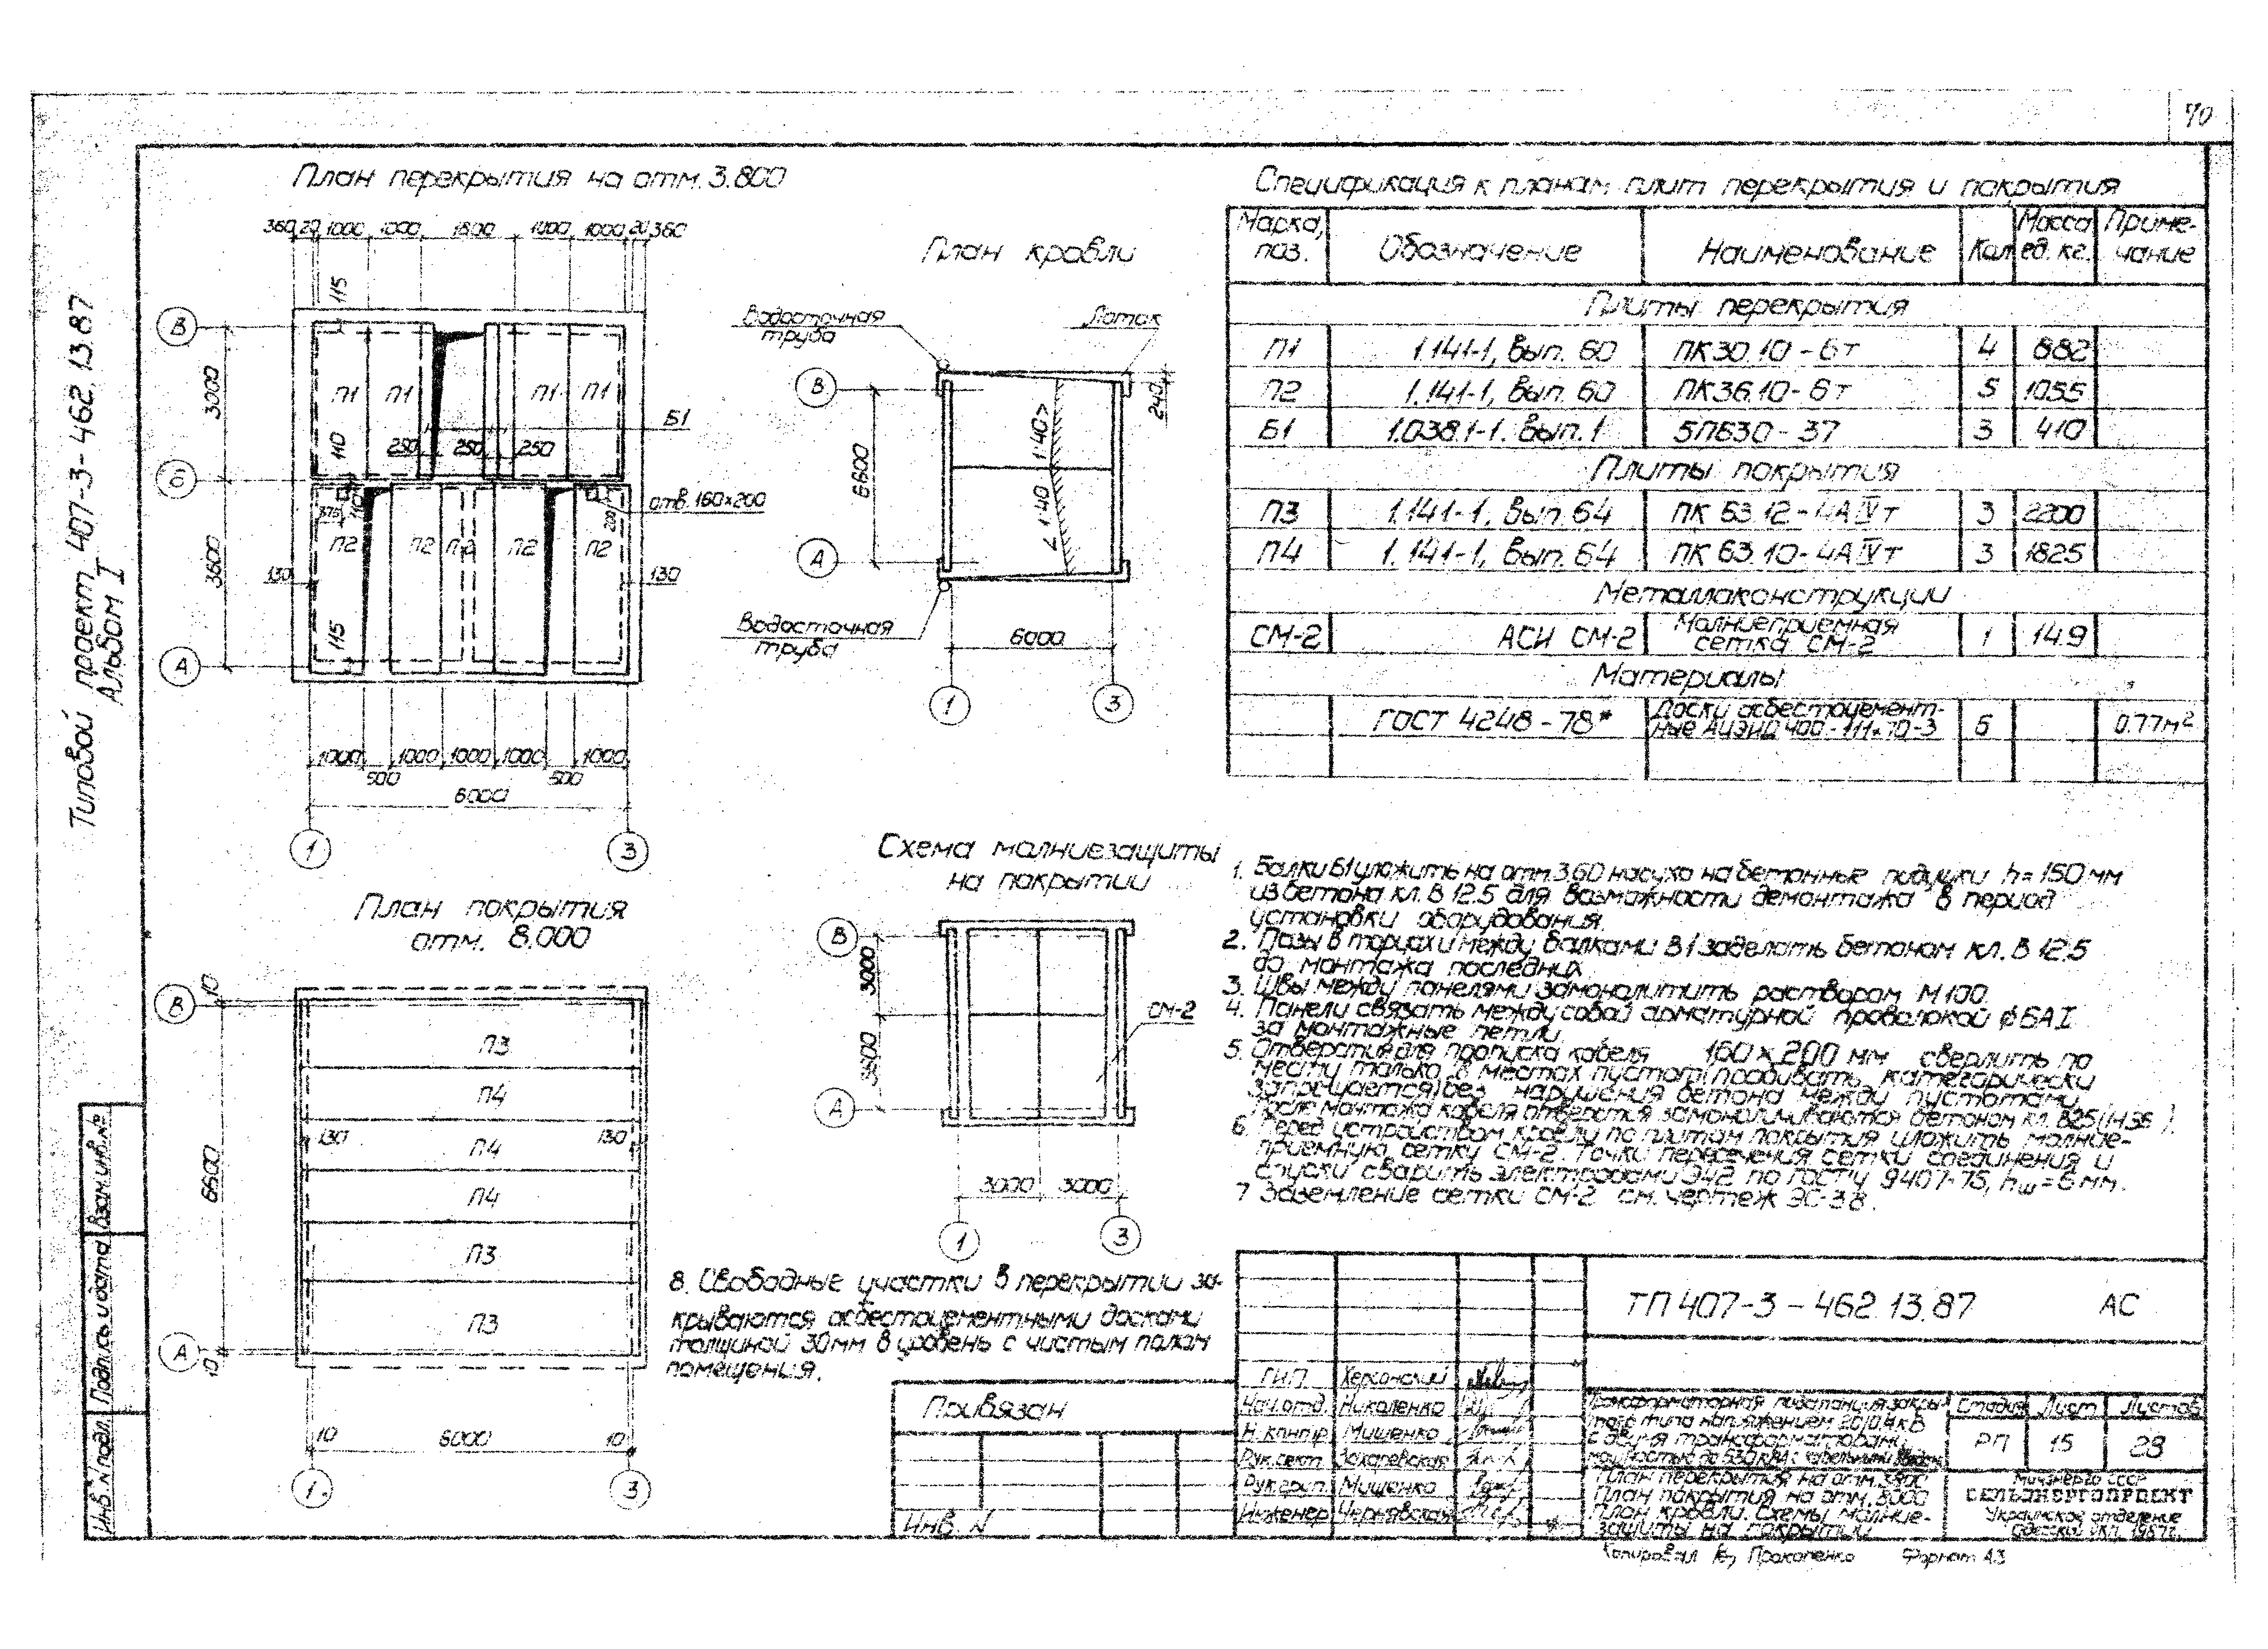 70
Типовой проект 407-3-462.13.87
Альбом I
План перекрытия на отм. 3.800
360 20 1000 1000 1800 1000 1000 20 360
115
В
3000
П1 П1 П1 П1
Б1
110
250 250 250
Б
отв. 160×200
375 110 200
П2 П2 П2 П2 П2
3600
130 130
115
А
1000 1000 1000 1000 1000
500 500
6000
1 3
План кровли
Водосточная
труба
Лоток
В
240
1:40 >
6600
< 1:40
А
Водосточная
труба
6000
1 3
Спецификация к планам плит перекрытия и покрытия
Марка, поз. Обозначение Наименование Кол. Масса ед. кг. Примечание
Плиты перекрытия
П1 1.141-1, Вып. 60 ПК30.10-6т 4 882
П2 1.141-1, Вып. 60 ПК36.10-6т 5 1055
Б1 1.038.1-1. Вып. 1 5ПБ30-37 3 410
Плиты покрытия
П3 1.141-1, Вып. 64 ПК 63.12-4АIVт 3 2200
П4 1.141-1, Вып. 64 ПК 63.10-4АIVт 3 1825
Металлоконструкции
СМ-2 АСИ СМ-2 Молниеприемная сетка СМ-2 1 14.9
Материалы
ГОСТ 4248-78* Доски асбестоцемент-
ные АЦЭИД 400-111×70-3 Б 0.77м²
План покрытия
отм. 8.000
В
10
П3
П4
130 П4 130
6600
П4
П3
П3
А
10
10 6000 10
1 3
Схема молниезащиты
на покрытии
В
3000
СМ-2
3600
А
3000 3000
1 3
1. Балки Б1 уложить на отм. 3.60 насухо на бетонные подушки h=150мм
из бетона кл. В 12.5 для возможности демонтажа в период
установки оборудования.
2. Пазы в торцах и между балками Б1 заделать бетоном кл. В 12.5
до монтажа последних.
3. Швы между панелями замонолитить раствором М100.
4. Панели связать между собой арматурной проволокой ф6АI
за монтажные петли.
5. Отверстия для пропуска кабеля 160×200 мм сверлить по
месту только в местах пустот (пробивать категорически
запрещается) без нарушения бетона между пустотами.
После монтажа кабеля отверстия замоноличиваются бетоном кл. В25
6. Перед устройством кровли по плитам покрытия уложить молние-
приемную сетку СМ-2. Точки пересечения сетки соединения и
спуски сварить электродами Э42 по ГОСТу 9467-75, hш=6мм.
7 Заземление сетки СМ-2 см. чертеж ЭС-38.
8. Свободные участки в перекрытии за-
крываются асбестоцементными досками
толщиной 30мм в уровень с чистым полом
помещения.
Привязан
Инв. N
ТП 407-3-462.13.87 АС
ГИП Херсонский
Нач.отд. Николенко
Н. контр. Мишенко
Рук.сект. Захаревская
Рук.груп. Мишенко
Инженер Чернявская
Трансформаторная подстанция закры-
того типа напряжением 20/0,4кВ
с двумя трансформаторами
мощностью до 630кВА с кабельными вводами
План перекрытия на отм. 3.800
План покрытия на отм. 8.000
План кровли. Схемы молние-
защиты на покрытии
Стадия Лист Листов
РП 15 28
Минэнерго СССР
СЕЛЬЭНЕРГОПРОЕКТ
Украинское отделение
Одесский ОКП 1987г.
Взам.инв.№
Подпись и дата
Инв.N подл.
Копировал Прокопенко Формат А3